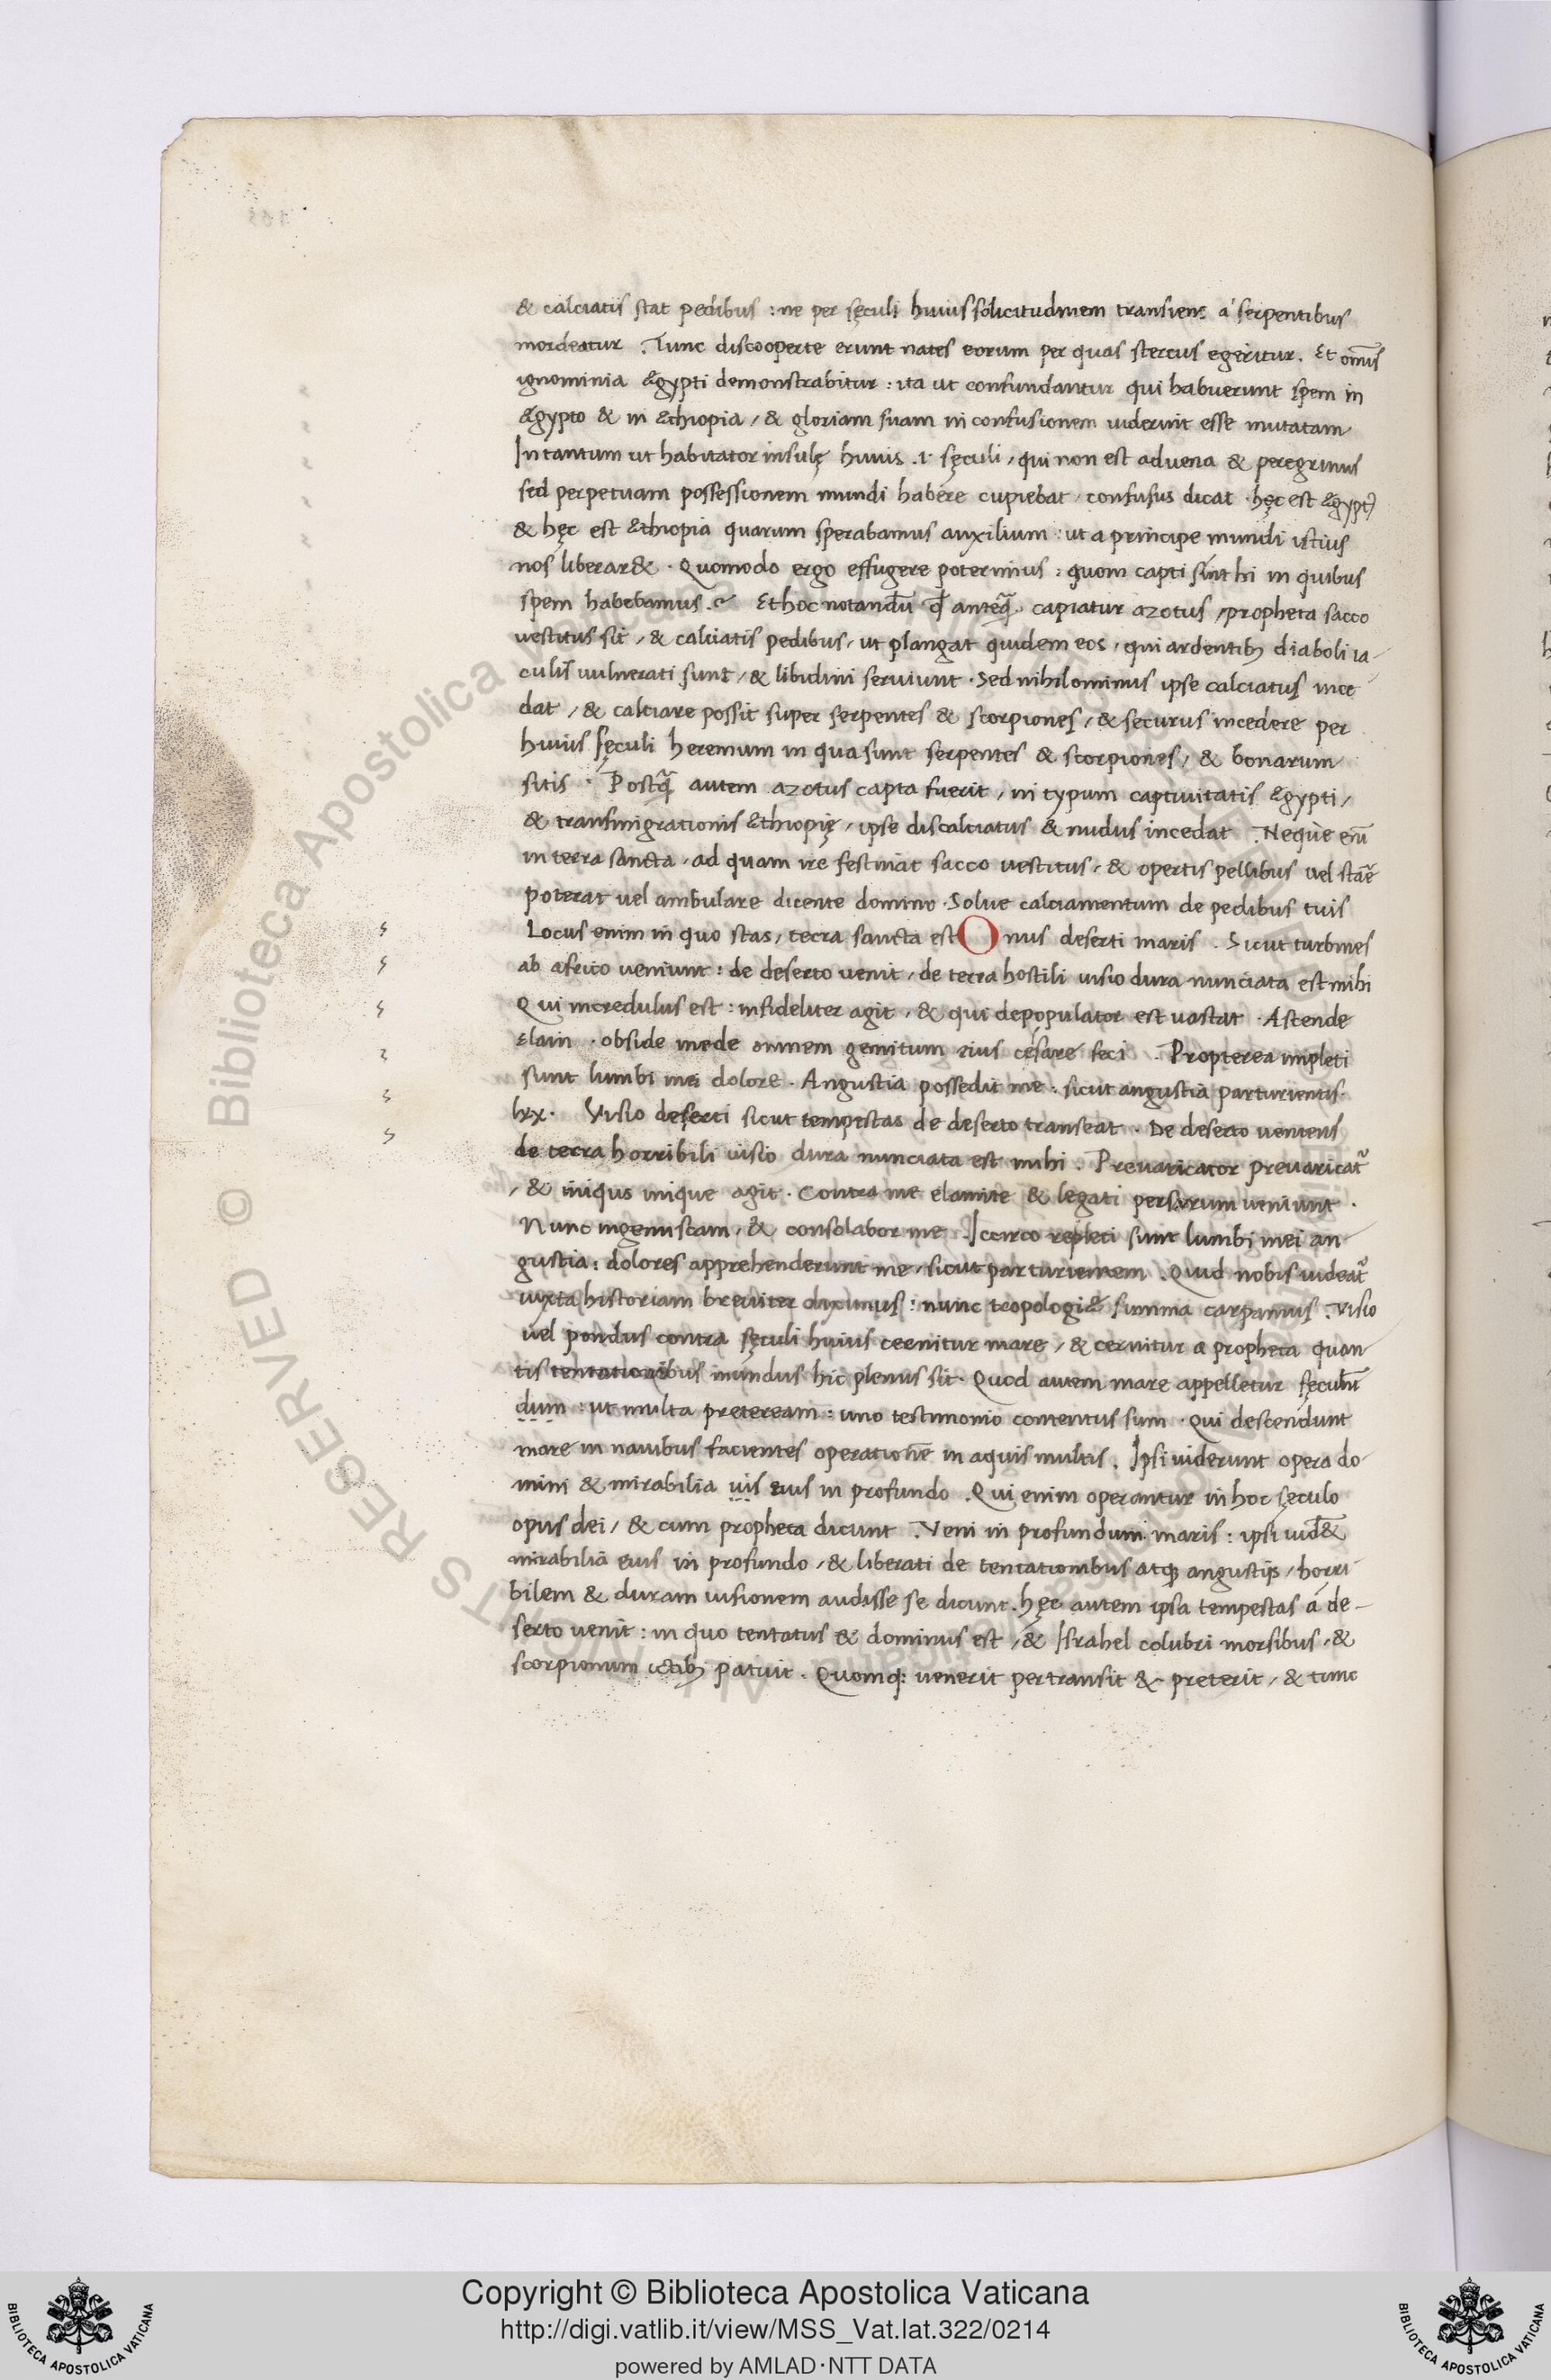 & calciatis stat pedibus : ne per sęculi huius solicitudinem transiens á serpentibus
mordeatur . Tunc discooperte erunt nates eorum per quas stercus egeritur . Et om̅is
ignominia ægypti demonstrabitur : ita ut confundantur qui habuerunt spem in
ægypto & in æthiopia / & gloriam suam in confusionem uiderint esse mutatam
In tantum ut habitator insulę huius .i. sęculi / qui non est aduena & peregrinus
sed perpetuam possessionem mundi habere cupiebat / confusus dicat . hęc est ægypt)
& hęc est æthiopia quarum sperabamus auxilium : ut a principe mundi istius
nos liberar& . Quomodo ergo effugere poterimus : quom capti sint hi in quibus
spem habebamus . Et hoc notandū q̄ anteq̃ capiatur azotus / propheta sacco
uestitus sit / & calciatis pedibus / ut plangat quidem eos / qui ardentib; diaboli ia-
culis uulnerati sunt / & libidini seruiunt . Sed nihilominus ipse calciatus ince
dat / & calciare possit super serpentes & scorpiones / & securus incedere per
huius sęculi heremum in qua sunt serpentes & scorpiones / & bonarum
sitis . Postq̃ autem azotus capta fuerit / in typum captiuitatis ægypti /
& transmigrationis æthiopię / ipse discalciatus & nudus incedat . Neque eni̅
in terra sancta / ad quam ire festinat sacco uestitus / & opertis pellibus uel stare
poterat uel ambulare dicente domino . Solue calciamentum de pedibus tuis
Locus enim in quo stas / terra sancta est Onus deserti maris . Sicut turbines
ab africo ueniunt : de deserto uenit / de terra hostili uisio dura nunciata est mihi
Qui incredulus est : infideliter agit / & qui depopulator est uastat . Ascende
elam . obside mede omnem gemitum eius césare feci . Propterea impleti
sunt lumbi mei dolore . Angustia possedit me : sicut angustia parturientis .
lxx . Visio deserti sicut tempestas de deserto transeat . De deserto ueniens
de terra horribili uisio dura nunciata est mihi . Preuaricator preuaricat̃
/ & iniqus inique agit . Contra me elamite & legati persarum ueniunt .
Nunc ingemiscam / & consolabor me . Iccirco repleti sunt lumbi mei an
gustia : dolores apprehenderunt me / sicut parturientem . Quid nobis uideat̃
iuxta historiam breuiter diximus : nunc tropologiæ summa carpamus . Visio
uel pondus contra sęculi huius cernitur mare / & cernitur a propheta quan
tis tentationibus mundus hic plenus sit . Quod autem mare appelletur
dum : ut multa preteream : uno testimonio contentus sum . Qui descendunt
mare in nauibus facientes operationē in aquis multis . Ipsi uiderunt opera do-
mini & mirabilia uis eius in profundo . Qui enim operantur in hoc sęculo
opus dei / & cum propheta dicunt . Veni in profundum maris : ipsi uid&
mirabilia eius in profundo / & liberati de tentationibus atq; angustijs / horri
bilem & duram uisionem audisse se dicunt . hęc autem ipsa tempestas á de-
serto uenit : in quo tentatus & dominus est / & Israhel colubri morsibus / &
scorpionum ictib; patuit . Quomq; uenerit pertransit & preterit / & tunc
Copyright © Biblioteca Apostolica Vaticana
http://digi.vatlib.it/view/MSS_Vat.lat.322/0214
powered by AMLAD·NTT DATA
BIBLIOTECA APOSTOLICA VATICANA
BIBLIOTECA APOSTOLICA VATICANA